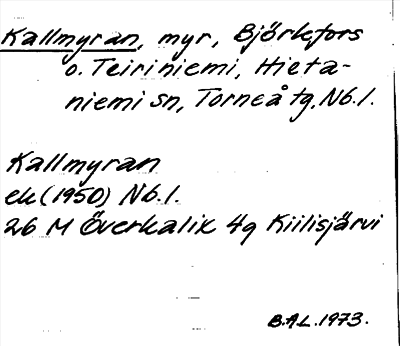 Kallmyran, myr, Björkfors
o. Teiriniemi, Hieta-
niemi sn, Torneå tg, Nb.l.
Kallmyran
ek (1950) Nb.l.
26 M Överkalix 4g Kiilisjärvi
B.A.L. 1973.